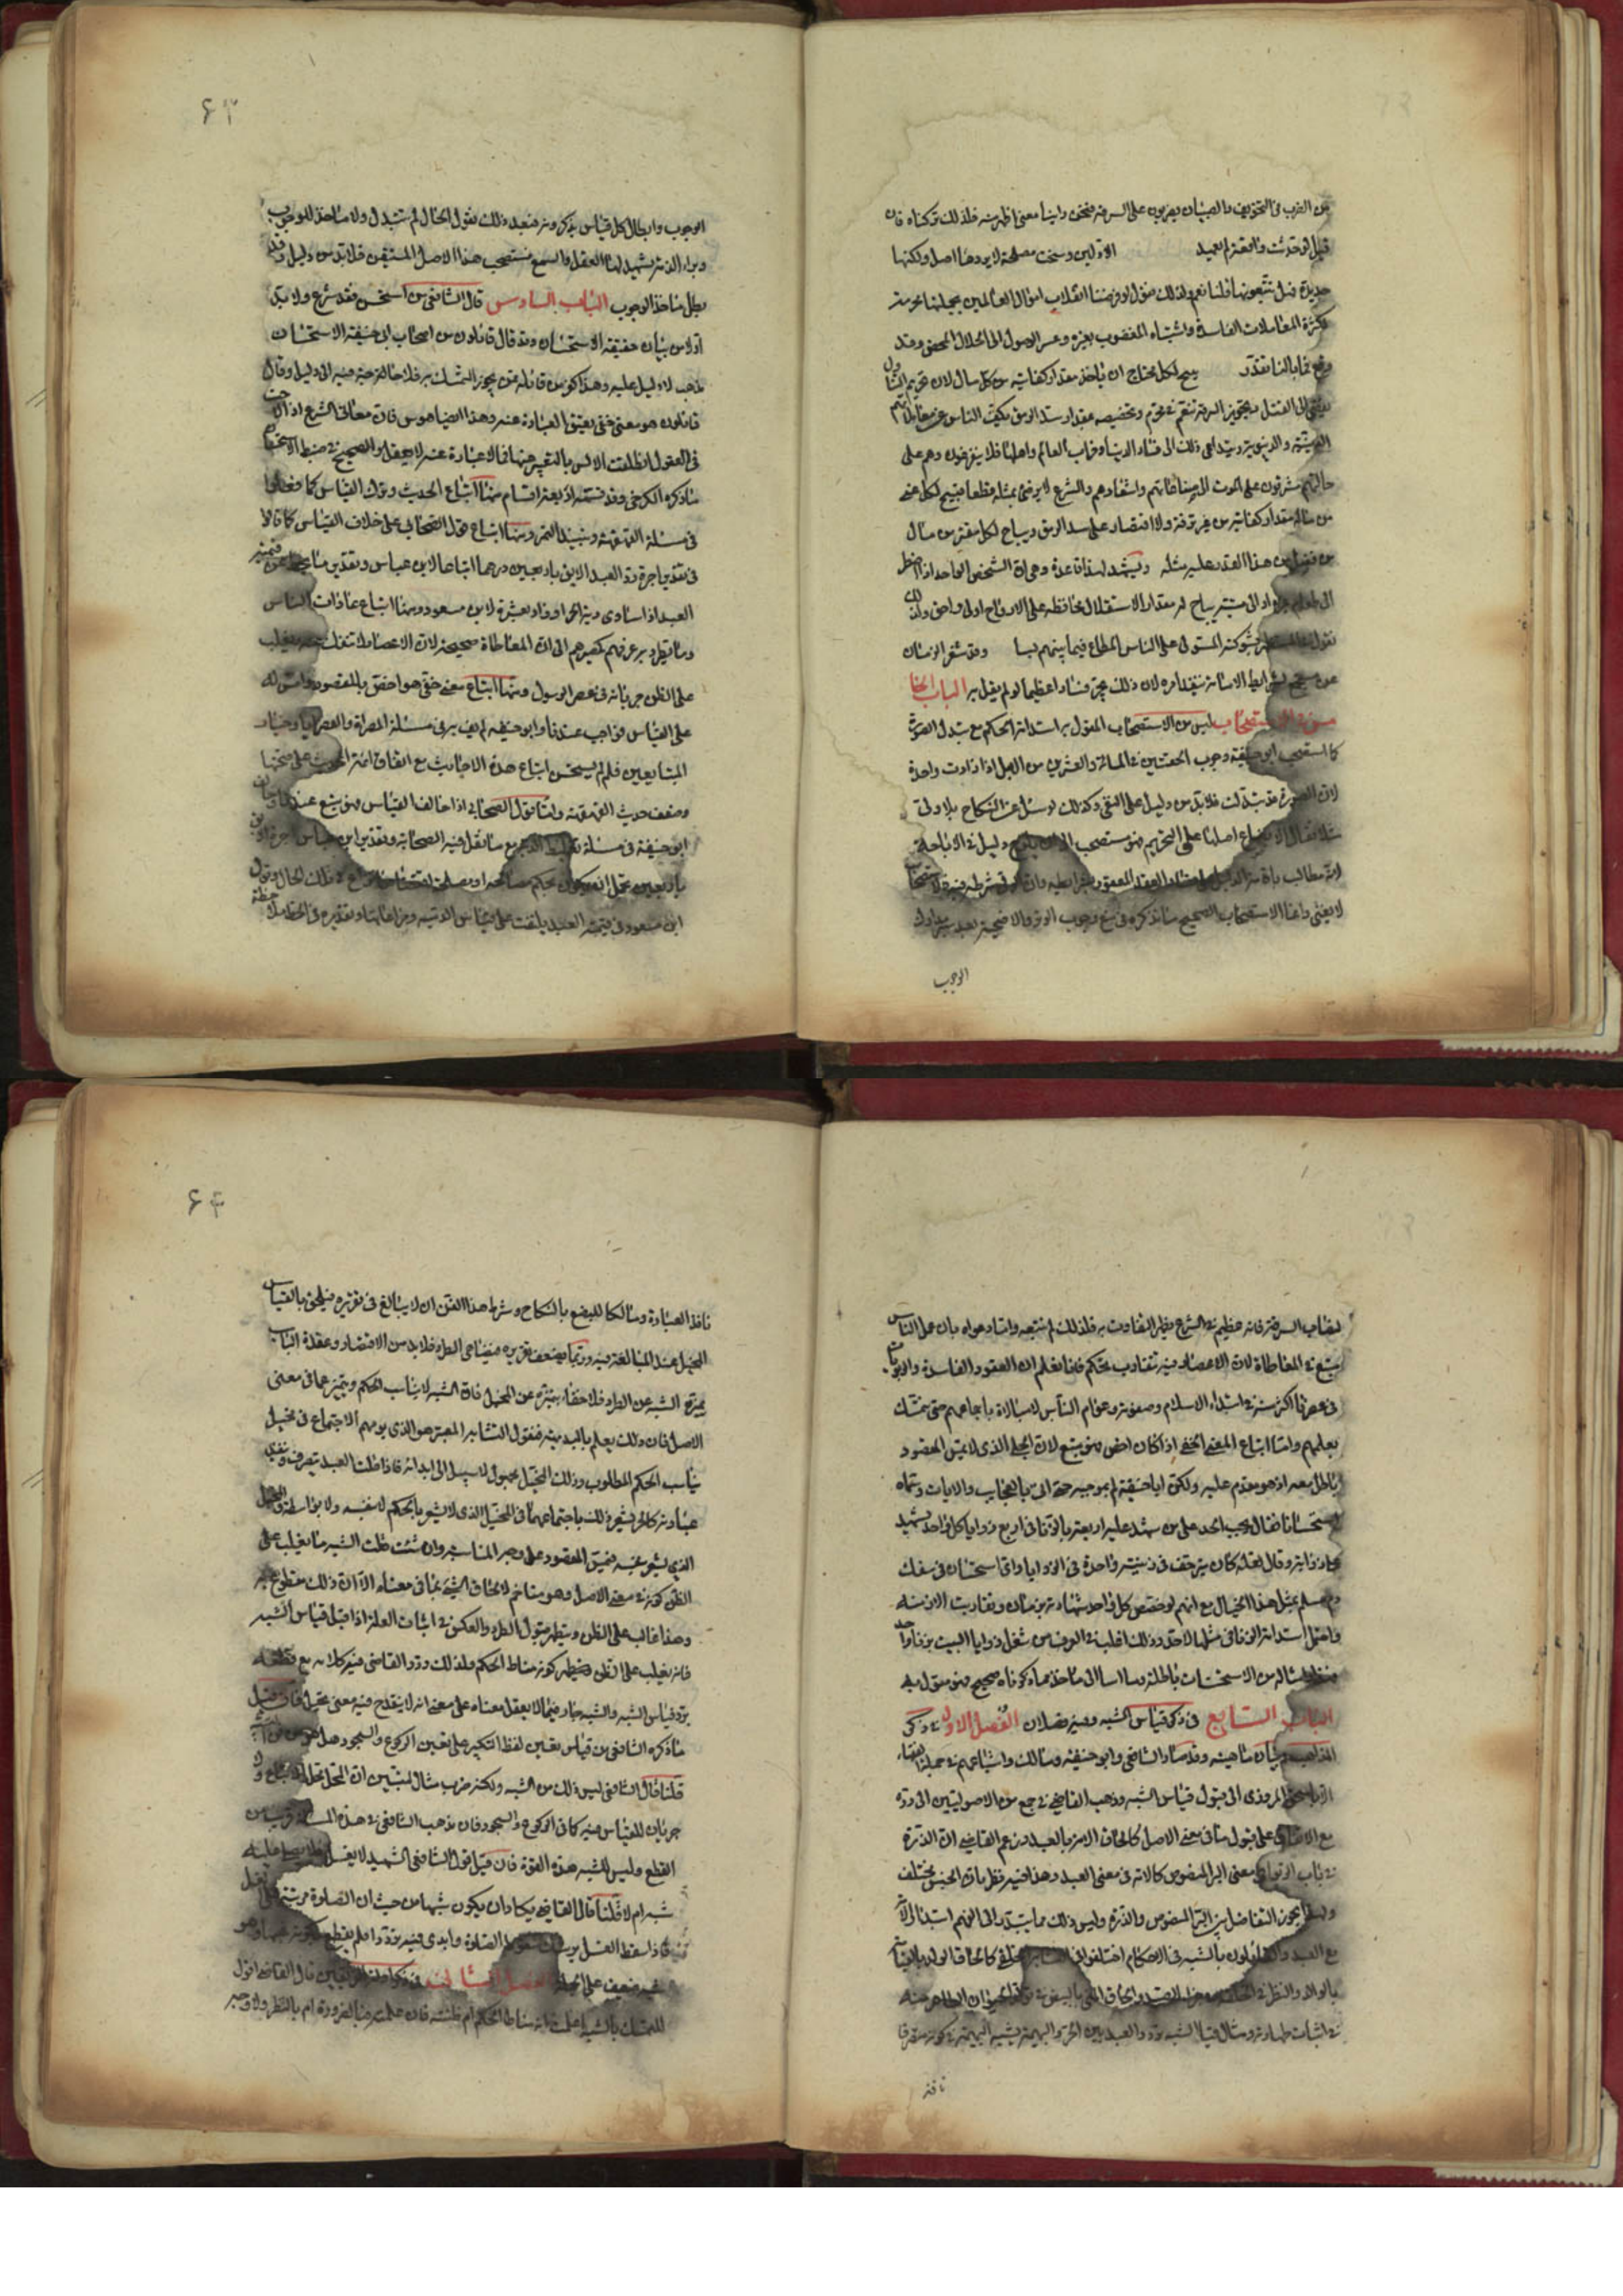 من الضرب في التخويف بالصبيان يضربون على السرقة فنحن راينا معنى اظهر منه فلذلك تركناه فان
قيل لو حدثت واقعة لم يعهد الاولين وسنحت مصلحة لا يردها اصل ولكنها
حديدة فهل تتبعونها قلنا نعم ولذلك نقول لو فرضنا انقلاب اموال العالمين بجملتها محرمة
لكثرة المعاملات الفاسدة واشتباه المغصوب بغيره وعسر الوصول الى الحلال المحض وقد
وقع فما بالنا نقدر يبيح لكل محتاج ان ياخذ مقدار كفايته من كل مال لان تحريم التناول
يفضي الى القتل وتجويز الترفه تنعم في محرم وتخصيصه بمقدار سد الرمق يكف الناس عن معاملاتهم
الدينية والدنيوية ويتداعى ذلك الى فساد الدنيا وخراب العالم واهلها فلا يتفرغون وهم على
حالتهم مشرفون على الموت الى صناعاتهم واشغالهم والشرع لا يرضى بمثله قطعا فيبيح لكل غني
من ماله مقدار كفايته من غير ترفه ولا اقتصار على سد الرمق ويباح لكل مقتر من مال
من فضل من هذا القدر عليه مثله ويشهد لهذا قاعدة وهي ان الشخص الواحد اذا اضطر
الى طعام غيره او الى ميتة يباح له مقدار الاستقلال محافظة على الارواح اولى واحق وكذلك
نقول بشوكته المستولي على الناس المطاع فيما بينهم وقد شغر الزمان
عن مستجمع لشرايط الامامة ينفذ امره لان ذلك يجر فسادا عظيما لو لم يقل به الباب الخا
مس في الاستصحاب ليس من الاستصحاب القول باستدامة الحكم مع تبدل الصورة
كما استصحب ابو حنيفة وجوب الحقتين في المائة والعشرين من الابل اذا زادت واحدة
لان الصورة قد تبدلت فلا بد من دليل على النفي وكذلك لو سئل عن النكاح بلا ولي
فلا يقال الابضاع اصلها على التحريم فنستصحب دليل في الاباحة
لانه مطالب باقامة الدليل
لا يغني وانما الاستصحاب الصحيح ما نذكره في منع وجوب الوتر والاضحية بعد سبر مدارك
الوجوب
۶۳
الوجوب وابطال كل قياس يذكرونه فبعد ذلك نقول الحال لم تتبدل ولا ماخذ للوجوب
وبراءة الذمة يشهد لها العقل والسمع فنستصحب هذا الاصل المستيقن فلا بد من دليل وقد
بطل ماخذ الوجوب الباب السادس قال الشافعي من استحسن فقد شرع ولا بد
اولا من بيان حقيقة الاستحسان وقد قال قائلون من اصحاب ابي حنيفة الاستحسان
مذهب لا دليل عليه وهذا كفر من قائله ممن يجوز التمسك به فلا حاجة فيه الى دليل وقال
قائلون هو معنى خفي يضيق العبارة عنه وهذا ايضا هوس فان معاني الشرع اذا لاحت
في العقول انطلقت الالسن بالتعبير عنها فما لا عبارة عنه لا يعقل والصحيح في ضبط الاستحسان
ما ذكره الكرخي وقد قسمه اربعة اقسام منها اتباع الحديث وترك القياس كما فعلوا
في مسئلة القهقهة ونبيذ التمر ومنها اتباع قول الصحابي على خلاف القياس كما قالوا
في تقدير اجرة رد العبد الابق باربعين درهما اتباعا لابن عباس وتقدير ما يحط عن قيمة
العبد اذا ساوى دية الحر او زاد بعشرة لابن مسعود ومنها اتباع عادات الناس
وما يطرد به عرفهم كمصيرهم الى ان المعاطاة صحيحة لان الاعصار لا تنفك عنه ويغلب
على الظن جريانه في عصر الرسول ومنها اتباع معنى خفي هو اخص بالمقصود وامس له
على القياس فواجب عندنا وابو حنيفة لم يف به في مسئلة المصراة والعرايا وخيار
المتبايعين فلم لم يستحسن اتباع هذه الاحاديث مع اتفاق ائمة الحديث على صحتها
وضعف حديث القهقهة واما قول الصحابي اذا خالف القياس فهو متبع عندنا
ابو حنيفة في مسئلة مع ما نقل فيه الصحابة وتقدير ابن عباس اجرة الابق
باربعين يحتمل انه كان بحكم مصالحة او مصلحة اقتضاها تلك الحال وقول
ابن مسعود في قيمة العبد يلتفت على قياس الدية ومراعاتها وتقديره في الحط
لنصاب السرقة فانه عظيم في الشرع يظهر التفاوت به فلذلك لم نتبعه وما ادعوه بان عمل الناس
متبع في المعاطاة لان الاعصار فيه تتقارب تحكم فانا نعلم ان العقود الفاسدة والربويات
في عصرنا اكثر منه في ابتداء الاسلام وصفوته وعوام الناس لا مبالاة باجماعهم حتى يتمسك
بعلمهم واما اتباع المعنى الخفي اذا كان اخص فهو متبع لان الجلي الذي لا يمس المقصود
باطل معه اذ هو مقدم عليه ولكن ابا حنيفة لم يف بموجبه حتى اتى بالعجايب والايات وسماه
استحسانا فقال يجب الحد على من شهد عليه اربعة بالزنا في اربع زوايا كل واحد يشهد
على زاوية وقال لعله كان يتزحف في زنية واحدة في الزوايا واي استحسان في سفك
دم مسلم بمثل هذا الخيال مع انهم لو خصص كل واحد شهادته بزمان وتقاربت الازمنة
واحتمل استدامة الزنا في مثلها لاحد وذلك اغلب في العرف من شغل زوايا البيت بزنا واحد
فهذا وامثاله من الاستحسانات باطلة وما اسندوا الى ماخذ مما ذكرناه صحيح فهو مقول به
الباب السابع في ذكر قياس الشبه وفيه فصلان الفصل الاول في ذكر
المذاهب وبيان ماهيته وقد صار الشافعي وابو حنيفة ومالك واتباعهم في جملة الفقهاء
الا ابا اسحق المروزي الى قبول قياس الشبه وذهب القاضي في جمع من الاصوليين الى رده
مع الاتفاق على قبول ما في معنى الاصل كالحاق الامة بالعبد وزعم القاضي ان الذرة
في باب الربوا في معنى البر المنصوص كالامة في معنى العبد وهذا فيه نظر بان الجنس مختلف
ولهذا يجوز التفاضل بين البر المنصوص والذرة وليس ذلك مما يبتدر الى الفهم ابتدارا لامة
مع العبد والقائلون بالشبه في الاحكام اختلفوا في
بالوالد والنظر في
في اثبات طهارته ومثال قياس الشبه تردد العبد بين الحر والبهيمة يشبه البهيمة في كونه متصرفا
نافذ
۶۴
نافذ العبارة ومالكا للبضع بالنكاح وشرط هذا الفن ان لا يبالغ في تقريره فيلحق بالقياس
المخيل عند المبالغة فيه وربما يضعف تقريره فيضاهي الطرد فلا بد من الاقتصاد وعقدة الباب
تمييز الشبه عن الطرد فلا خفاء بتميزه عن المخيل فان الشبه لا يناسب الحكم ويتميز عما في معنى
الاصل فان ذلك يعلم بالبديهة فنقول التشابه المعتبر هو الذي يوهم الاجتماع في مخيل
يناسب الحكم المطلوب وذلك المخيل مجهول لا سبيل الى ابدائه فاذا قلت العبد يتصرف وتنفذ
عبارته كالحر يشعر ذلك باجتماعهما في المخيل الذي لا يشعر بالحكم لا بنفسه ولا بواسطة المخيل
الذي يشعر عنه فيمس المقصود على وجه المناسبة وان شئت قلت الشبه ما يغلب على
الظن كونه في معنى الاصل وهو مناخم لالحاق الشيء بما في معناه الا ان ذلك مقطوع به
وهذا غالب على الظن ويظهر بقبول الطرد والعكس في اثبات العلة اذا قبل قياس الشبه
فانه يغلب على الظن فيظهر كونه مناط الحكم ولذلك ردد القاضي فيه كلامه مع قطعه
برد قياس الشبه والشبه جار فيما لا يعقل معناه على معنى انه لا ينقدح فيه معنى مخيل فان قيل
ما ذكره الشافعي من قياس تعيين لفظ التكبير على تعيين الركوع والسجود هل هو من
قلنا قال الشافعي ليس ذلك من الشبه ولكنه ضرب مثال لتبيين ان المحل محل الاتباع ولا
جريان للقياس فيه كما في الركوع والسجود فان مذهب الشافعي في هذه المسئلة قريب من
القطع وليس للشبه هذه القوة فان قيل قول الشافعي الشهيد لا يغسل فلا يصلى عليه
شبه ام لا قلنا قال القاضي يكاد ان يكون شبها من حيث ان الصلوة مرتبة على الغسل
فاذا سقط الغسل الصلوة وابدى فيه ترددا فلم يقطع بكونه شبها وهو
شبه ضعيف على الجملة الفصل الثاني في ذكر قال القاضي اقول
للمتمسك بالشبه اعلمت انه مناط الحكم ام ظننته فان علمت فبالضرورة ام بالنظر ولا وجه